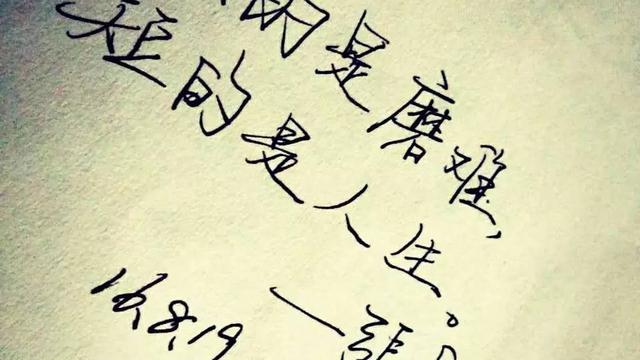 的是磨难,
短的是人生。
16.8.19 一張